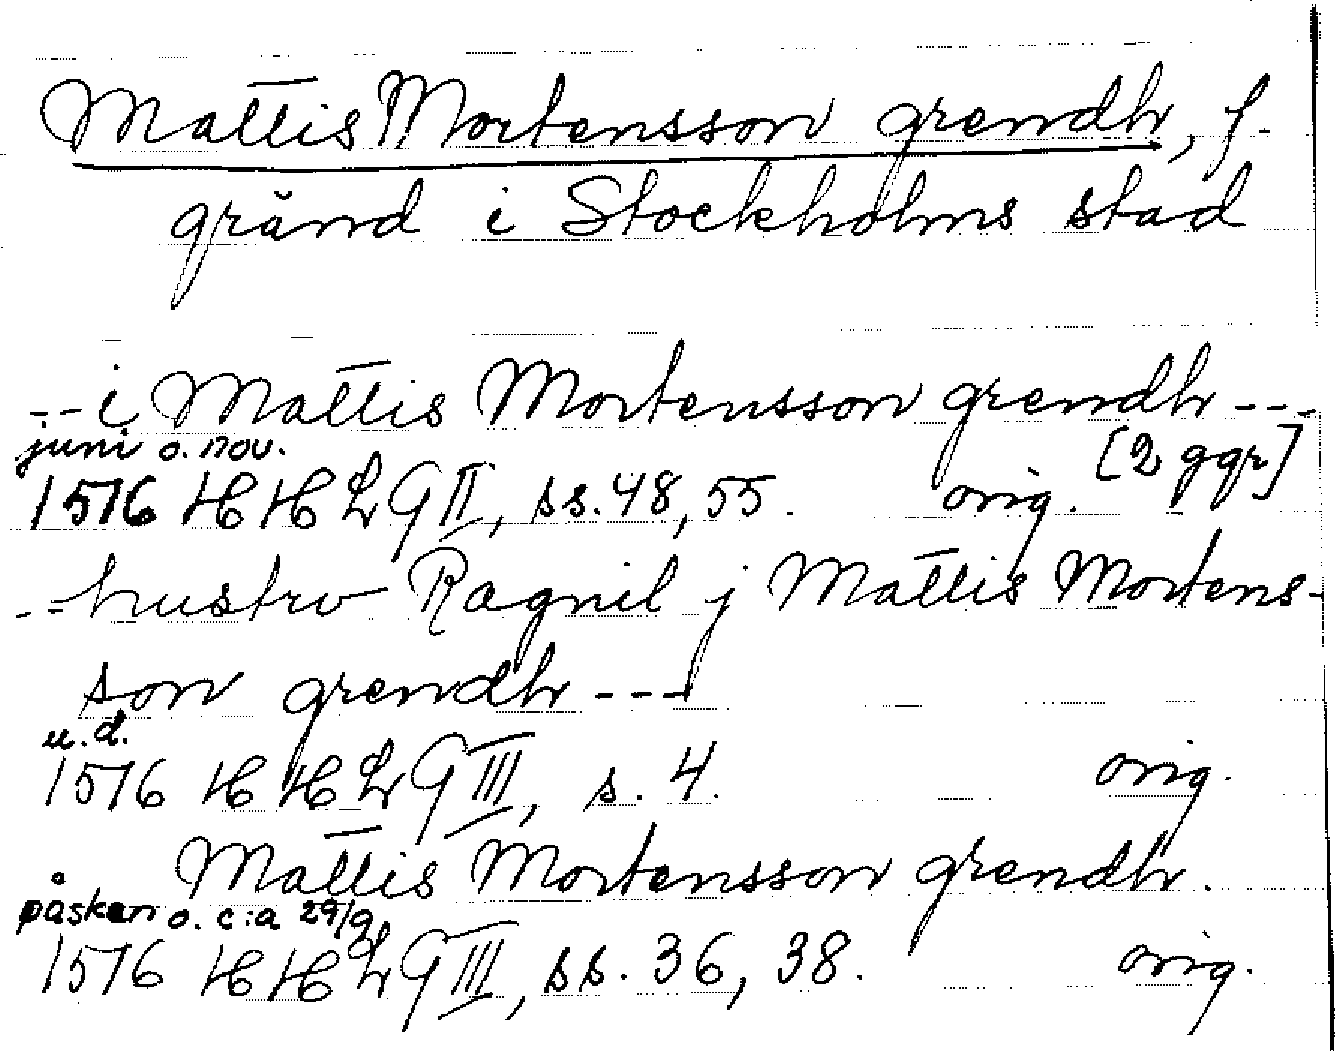 Mattis Mortensson grendh, f.
gränd i Stockholms stad
--i Mattis Mortensson grendh---
juni o. nov. [2 ggr]
1576 HHLG II, ss. 48, 55. orig.
--hustrv Ragnil j Mattis Mortens-
son grendh---
u.d.
1576 HHLG III, s. 4. orig.
Mattis Mortensson grendh.
påsken o. c:a 29/9
1576 HHLG III, ss. 36, 38. orig.